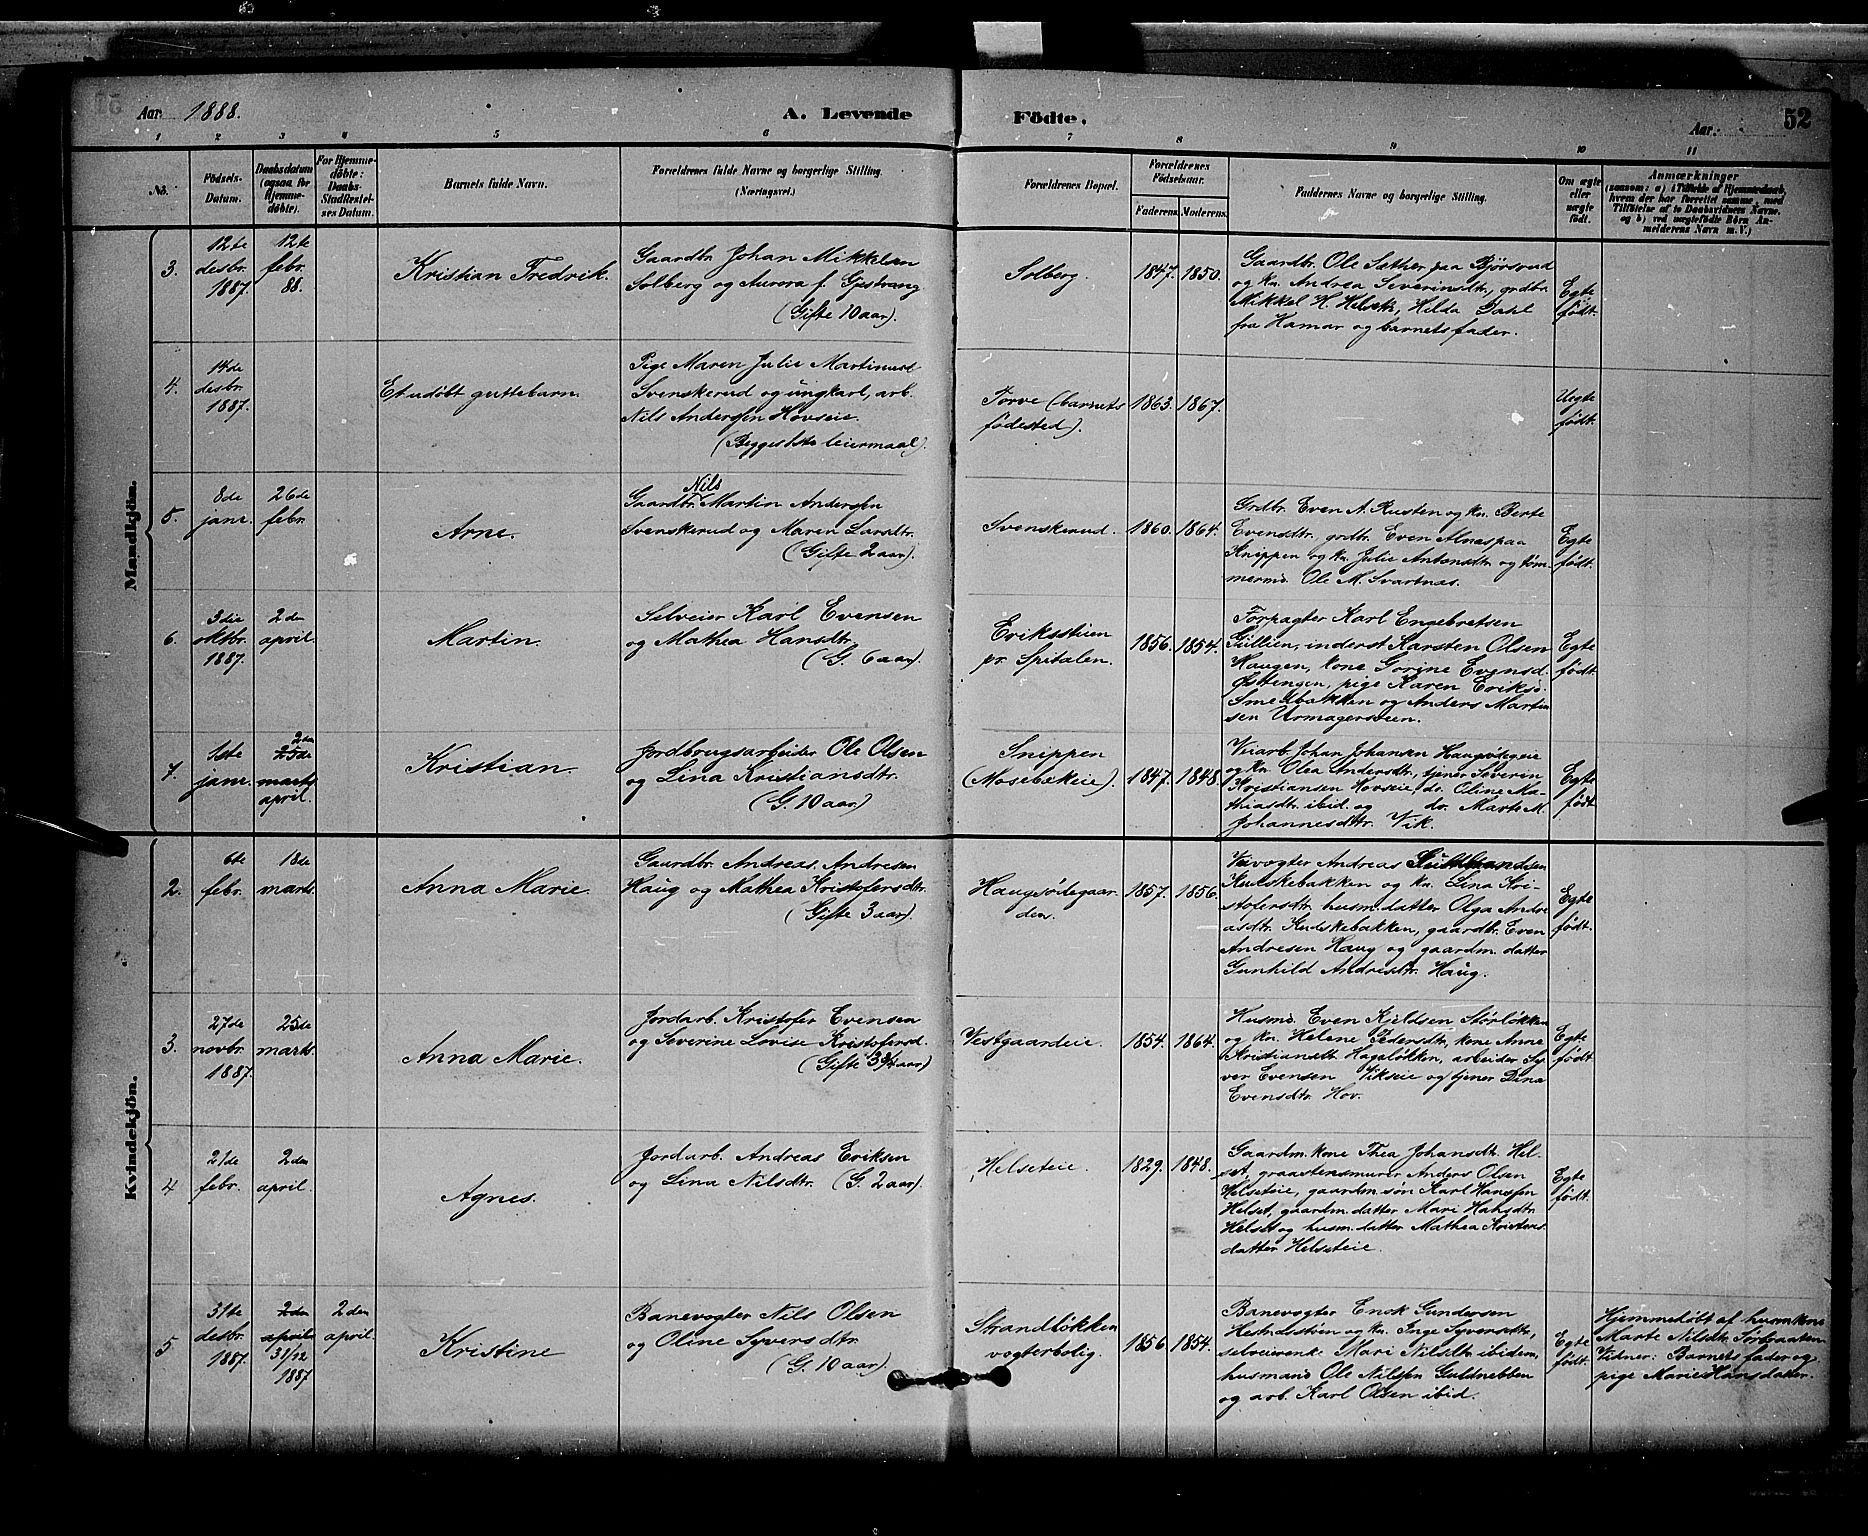 Aar 1888.
A. Levende Födte.
Aar:
52
1 2 3 4 5 6 7 8 9 10 11
No.
Födsels-
Datum.
Daabsdatum
(ogsaa for
Hjemme-
döbte).
For Hjemme-
döbte:
Daabs-
Stadfæstel-
ses Datum.
Barnets fulde Navn.
Forældrenes fulde Navne og borgerlige Stilling.
(Næringsvei.)
Forældrenes Bopæl.
Forældrenes
Födselsaar.
Faderens. Moderens.
Faddernes Navne og borgerlige Stilling.
Om ægte
eller
uægte
födt.
Anmærkninger
(saasom: a) i Tilfælde af Hjemmedaab,
hvem der har forrettet samme, med
Tilföielse af to Daabsvidners Navne,
og b) ved uægtefödte Börn An-
melderens Navn m.V.)
Mandkjön.
3.
12te
desbr.
1887.
12te
febr.
88.
Kristian Fredrik.
Gaardbr. Johan Mikkelsen
Solberg og Aurora f. Gjestvang
(Gifte 10 aar).
Solberg.
1847. 1850.
Gaardbr. Ole Sæther paa Bjørsrud
og kn. Andrea Severinsdtr, grdbr.
Mikkel H. Helseth, Hilda Dahl
fra Hamar og barnets fader.
Egte
født.
4.
14de
desbr.
1887.
Et udøbt guttebarn.
Pige Maren Julie Martinusd
Svenskerud og ungkarl, arb.
Nils Anderssen Hovseie.
(Begges 1ste leiermaal).
Torve (barnets
fødested).
1863. 1867.
Uegte
født.
5.
8de
janr.
26de
febr.
Arne.
Gaardbr. Nils Martin Anderssen
Svenskerud og Maren Larsdtr.
(Gifte 2 aar).
Svenskerud.
1860. 1864.
Grdbr. Even A. Rusten og kn. Berte
Evensdtr. grdbr. Even Alnæs paa
Knippen og kn. Julie Antonsdtr. og tøm-
mermd. Ole M. Svartnæs.
Egte
født.
6.
3die
oktbr.
1887.
2den
april.
Martin.
Selveier Karl Evensen
og Mathea Hansdtr.
(G. 6 aar)
Eriksstuen
pr. Spitalen.
1856. 1854.
Forpagter Karl Engebretsen
Gullien, inderst Karsten Olsen
Haugen, kone Gorine Evensd.
Østtengen, pige Karen Eriksd.
Smedbakken og Anders Martin
sen Urmagerstuen.
Egte
født.
7.
1ste
janr.
2den
25de
marts
april.
Kristian.
Jordbrugsarbeider Ole Olsen
og Lina Kristiansdtr.
(G. 10 aar)
Snippen
(Mosebækeie).
1847. 1848.
Veiarb. Johan Johansen Haugsødegeie
og kn. Olea Andersdtr, tjener Severin
Kristiansen Hovseie, do. Oline Ma-
thiasdtr. ibid. og do. Marte M.
Johannesdtr. Vik.
Egte
født.
Kvindekjön.
2.
6te
febr.
18de
marts.
Anna Marie.
Gaardbr. Andreas Andresen
Haug og Mathea Kristofersdtr.
(Gifte 3 aar).
Haugsødegaar-
den.
1857. 1856.
Veivogter Andreas Guldbrandsen
Kudskebakken og kn. Lina Kri-
stofersdtr. husm. datter Olga Andre
asdtr. Kudskebakken, gaardbr. Even
Andresen Haug og gaardm. datter
Gunhild Andresdtr. Haug.
Egte
født.
3.
27de
novbr.
1887.
25de
marts.
Anna Marie.
Jordarb. Kristofer Evensen
og Severine Lovise Kristofersd.
(Gifte 3 3/4 aar)
Vestgaardeie.
1854. 1864.
Husmd. Even Kjeldsen Størløkken
og kn. Helene Pedersdtr, kone Anne
Kristiansdtr Hageløkken, arbeider Sy-
ver Evensen Vikseie og tjener Dina
Evensdtr. Hov.
Egte
født
4
21de
febr.
2den
april.
Agnes.
Jordarb. Andreas Eriksen
og Lina Nilsdtr. (G. 2 aar).
Helseteie.
1829. 1848.
Gaardm. kone Thea Johansdtr. Hel-
set, graastensmurer Anders Olsen
Helseteie, gaardm. søn Karl Hanssen
Helset, gaardm. datter Mari Hansdtr.
Helset og husm. datter Mathea Kristens
datter Helseteie.
Egte
født.
5
31te
desbr.
1887.
2den
april
31/12
1887
2den
april.
Kristine
Banevogter Nils Olsen
og Oline Syversdtr.
(G. 10 aar).
Strandløkken
vogterbolig.
1856. 1854.
Banevogter Gundersen
og kn. Inge Syversdtr,
selveierenk. Mari Nilsdtr ibidem,
husmand Ole Nilssen Guldnebben
og arb. Karl Olsen ibid.
Egte
født.
Hjemmedøbt af husmkone
Marte Nilsdtr. Sørbraaten
Vidner: Barnets fader og
pige Marie Hansdatter.